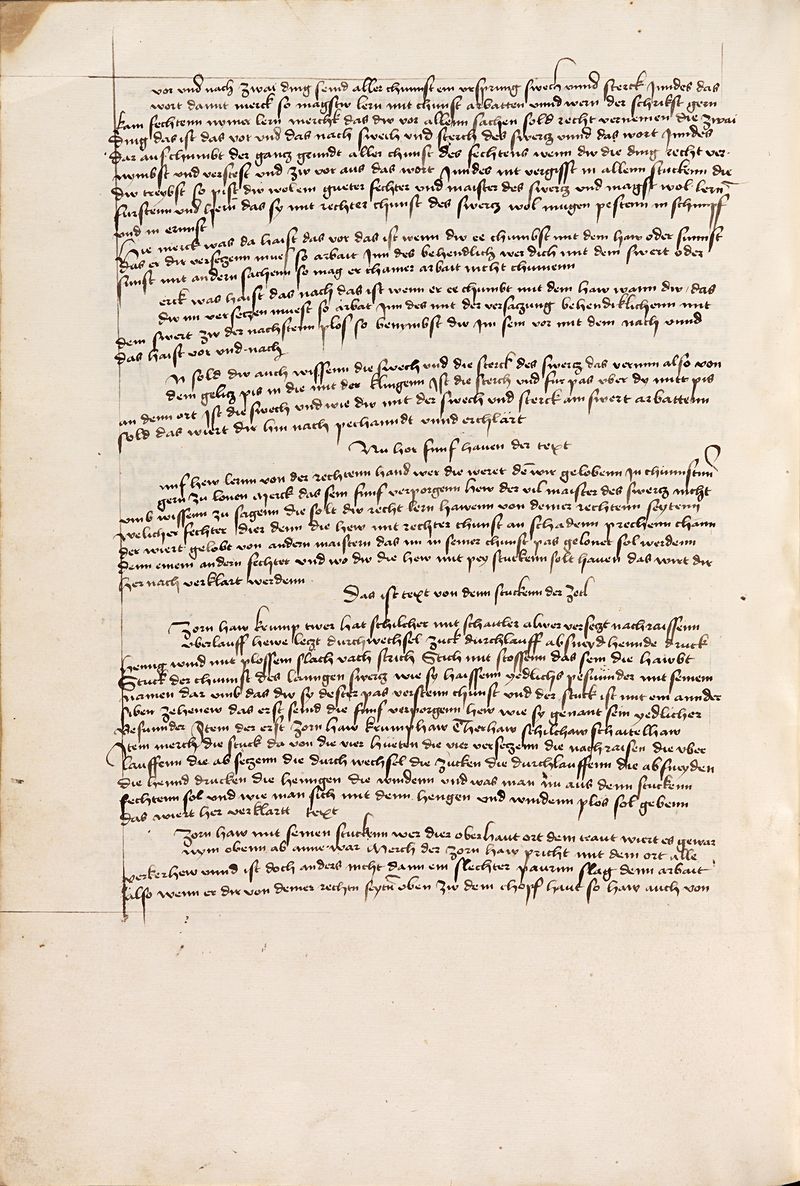 vor vnd nach zwai ding seind aller chunnst ein vrsprung swech vnnd sterck Inndes das
wort damit merck so magstw lern mit chunst arbatten vnnd wern der schrikst gern
kain fechtenn nymer lern merckt das dw vor allenn sachen sold recht vernemen die zwai
ding das ist das vor vnd das nach swech vnd sterch des swertz vnnd das wort Inndes
Dar aus chumbt der gantz grundt aller chunst des fechtens wenn dw die ding recht ver
nymbst vnd verstest vnd zw vor aus das wort Inndes nit vergisst in allenn stuckenn die
dw treybst so pist dw wol ein gueter fechter vnd maister des swertz vnd magst wol lernn
fürstenn vnd hern das sy mit rechter chunst des swertz wol mugen pesten in schimpf
vnd in ernnst
Hie merck was da haist das vor das ist wenn dw ee chumbst mit dem haw oder sunnst
das er dir versetzenn mues so arbait Inn des behendlich wer dich mit dem swert oder
sunst mit andern sachenn so mag er chainer arbait nicht chumenn
erck was haist das nach das ist wenn er ee chumbt mit dem haw wann dw das
dw im versetzen muest so arbat Inn des mit der versaczung behendiklichenn mit
dem swert zw der nachstenn plos so benymbst dw Im sein vor mit dem nach vnnd
das haist vor vnd nach
N sold dw auch wissenn die swech vnd die sterck des swertz das vernim also von
dem gehiltz pis in die mit der klingenn Ist die sterch vnd fur pas vber dy mitt pis
an denn ort Ist die swech vnd wie dw mit der swech vnd sterck am swert arbattenn
sold das wiert dir hin nach pechanndt vnnd erchlärt
Nu hor funf hauen der text
unf hew lernn von der rechtenn hand wer die weret den wir gelobenn in chunnstenn
gern zu lonen Merck das sein funf verporgenn hew der vil maister des swertz nicht
vmb wissenn zu sagenn die solt dw recht lern hawenn von deiner rechtenn seytenn
welicher fechter dier denn die hew mit rechter chunst an schadenn prechenn chann
der wiert gelobt von andern maistern das im in seiner chunst pas gelonet sol werdenn
denn einem andern fechter vnd wo dw die hew mit pey stuckenn solt hauen das wirt dir
her nach verklart werdenn
Das ist text von denn stuckenn der zetl
Zorn haw krump twer hat schilcher mit schaitler alwer versetzt nachraissenn
vberlauff hewe letzt durchwechsel zuck durchlauff absneyd hennde druck
henng wind mit plossem slach vach strich Stich mit stossenn das sein die hawbt
Stuck der chunnst des lanngen swertz wie sy haissenn yedlichs pesunnder mit seinem
namen dar vmb das dw sy dester pas verstenn chunst vnd der stuck ist mit ein annder
siben zehenew das erst seind die funf verporgenn hew wie sy genant sein yedlicher
Besunnder Item der erst zorn haw krumphaw Twerhaw schilchaw schaitelhaw
Item merch die stuck da von die vier hueten die vier versetzenn die nachraisen die vber
lauffenn die ab setzenn die durch wechsel die zucken die durchlauffenn die absneyden
die hennd drucken die henngen die windenn vnd was man nu aus denn stuckenn
fechtenn sol vnd wie man sich mit denn hengen vnd windenn plos sol gebenn
das wiert her verklartt text
Zorn haw mit seinen stuckenn wer dier oberhaut ort dem traut wiert es gewar
nym obenn ab anne var Merch der zorn haw pricht mit dem ort alle
oberhew vnnd ist doch anders nicht dann ein slechter paurnn slag denn arbait
also wenn er dir von deiner rechtn seytn oben zw dem chopf haut so haw auch von